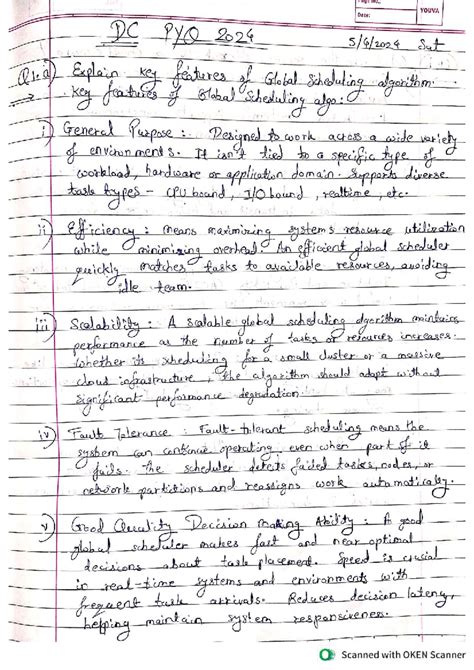 Page No.
Date:
YOUVA
DC PYQ 2024
5/4/2024 Sat
Q1.a) Explain key features of Global Scheduling algorithm.
Key features of Global Scheduling algo:
i) General Purpose : Designed to work across a wide variety
of environments. It isn't tied to a specific type of
workload, hardware or application domain. Supports diverse
task types - CPU bound, I/O bound, realtime, etc.
ii) Efficiency : means maximizing systems resource utilization
while minimizing overhead. An efficient global scheduler
quickly matches tasks to available resources, avoiding
idle team.
iii) Scalability : A scalable global scheduling algorithm maintains
performance as the number of tasks or resources increases.
Whether its scheduling for a small cluster or a massive
cloud infrastructure, the algorithm should adapt without
significant performance degradation.
iv) Fault Tolerance : Fault-tolerant scheduling means the
system can continue operating even when part of it
fails. The scheduler detects failed tasks, nodes, or
network partitions and reassigns work automatically.
v) Good Quality Decision Making Ability : A good
global scheduler makes fast and near optimal
decisions about task placement. Speed is crucial
in real-time systems and environments with
frequent task arrivals. Reduces decision latency,
helping maintain system responsiveness.
Scanned with OKEN Scanner